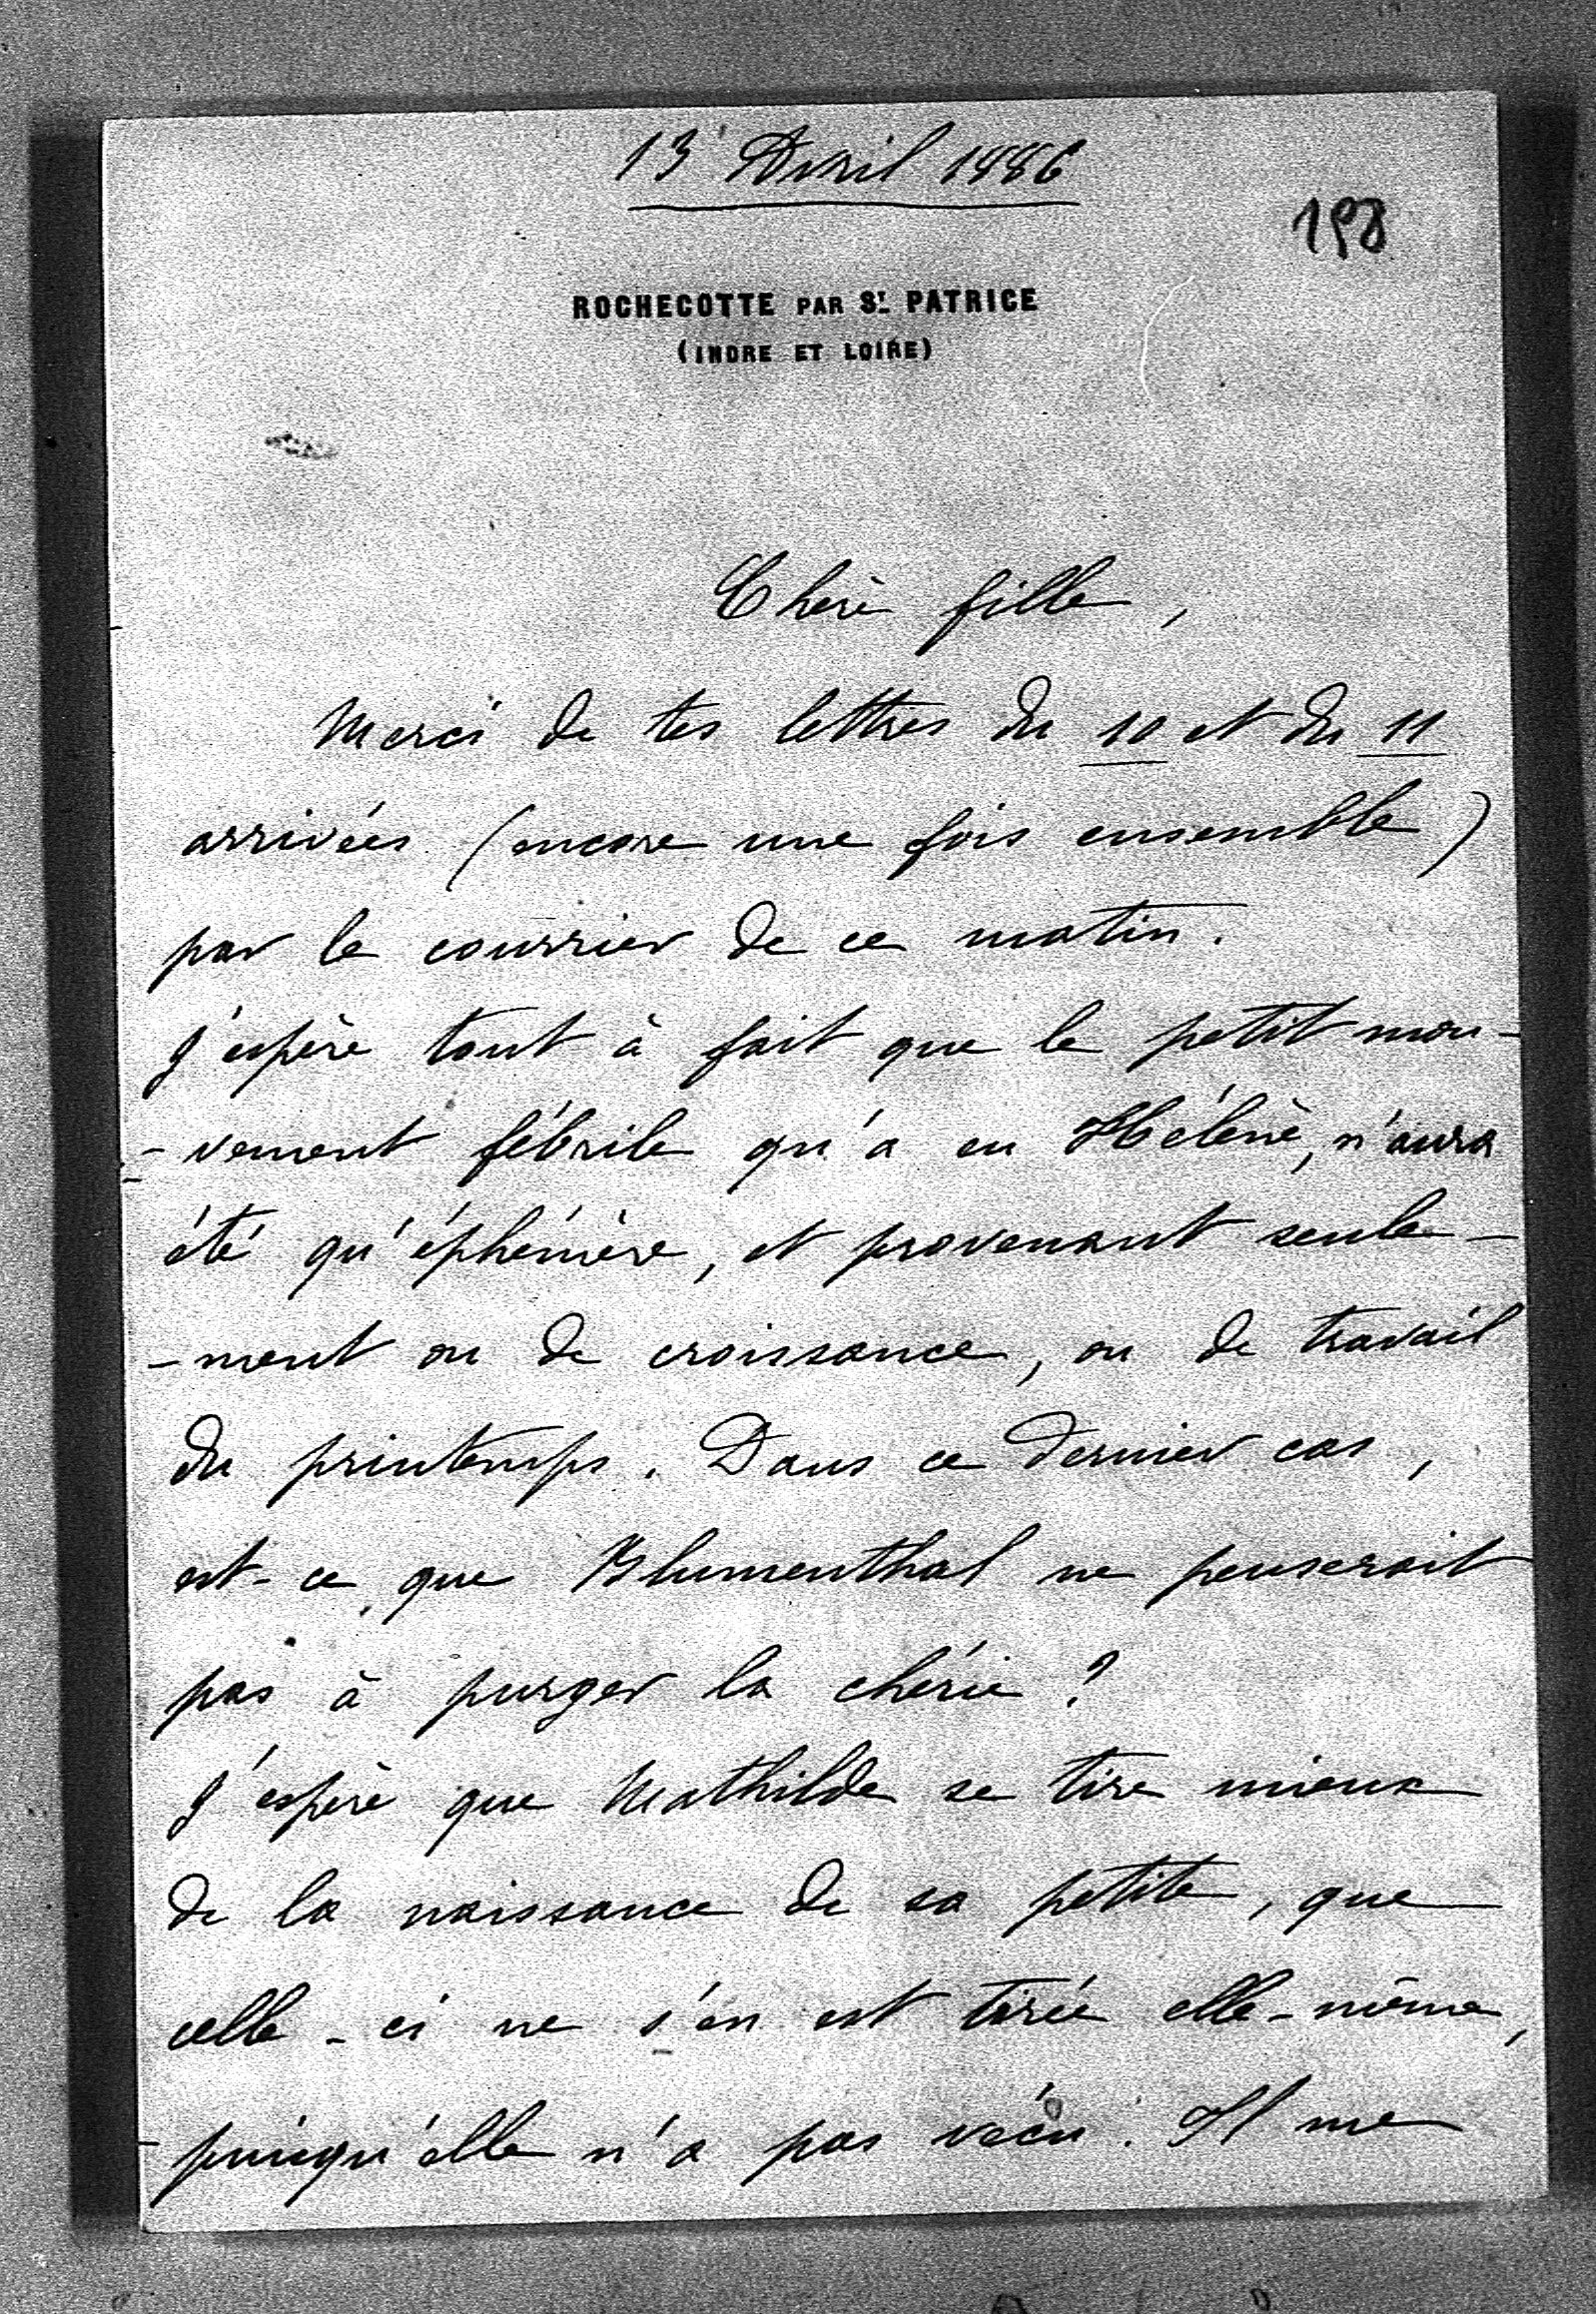 13 Avril 1886
198
ROCHECOTTE PAR ST. PATRICE
(INDRE ET LOIRE)
Chère fille,
Merci de tes lettres du 10 et du 11
arrivées (encore une fois ensemble)
par le courrier de ce matin.
J'espère tout à fait que le petit mou-
-vement fébrile qu'a eu Hélène, n'aura
été qu'éphémère, et provenant seule-
-ment ou de croissance, ou de travail
du printemps. Dans ce dernier cas,
est-ce que Blumenthal ne penserait
pas à purger la chérie?
J'espère que Mathilde se tire mieux
de la naissance de sa petite, que
celle-ci ne s'en est tirée elle-même,
puisqu'elle n'a pas vécu. Il me